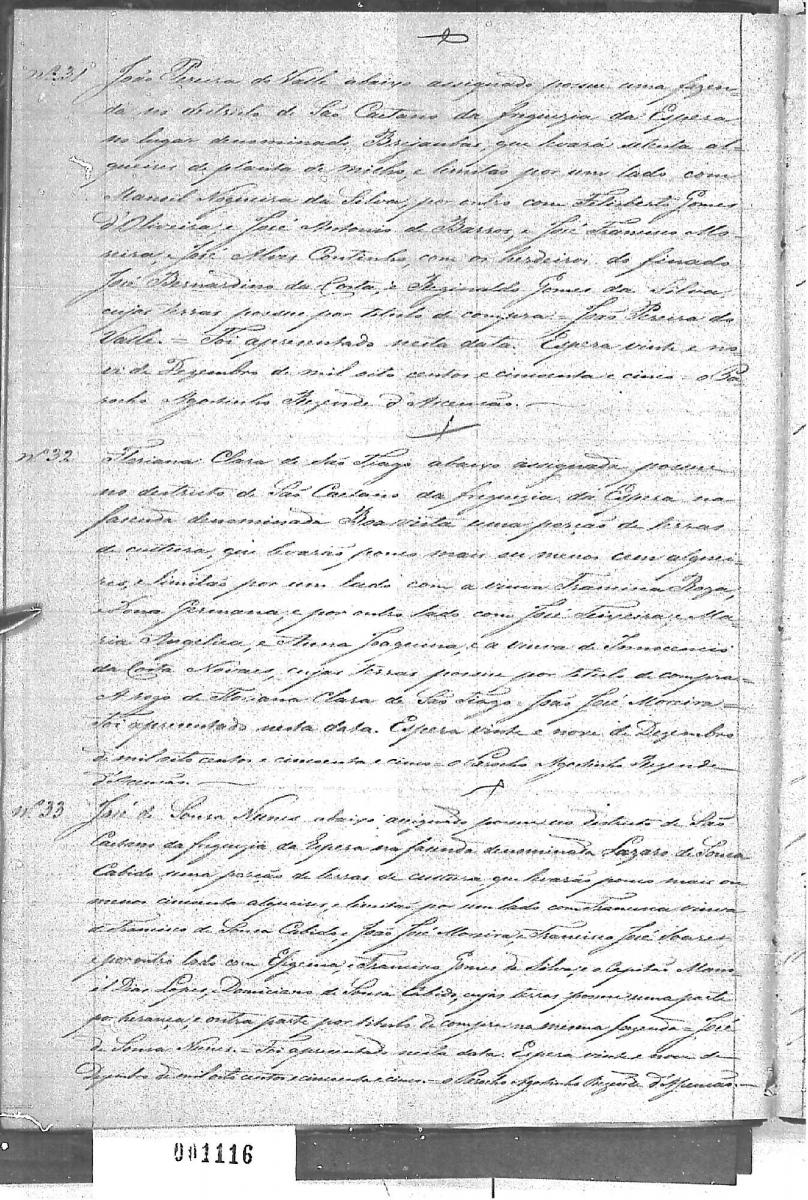 nº 31 João Pereira do Valle abaixo assignado possue uma fazen-
da no districto de São Caetano da freguezia da Espera
no lugar denominado Brejaubas, que levará setenta al-
queires de planta de milho, e limitão por um lado com
Manoel Nogueira da Silva, por outro com Felisberto Gomes
d'Oliveira, e José Antonio de Barros, e José Francisco Mo-
reira, e José Alves Coutinho, com os herdeiros do finado
José Bernardino da Costa, e Reginaldo Gomes da Silva
cujas terras possue por titulo de compra = João Pereira do
Valle. = Foi apresentado nesta data. Espera vinte e no-
ve de Dezembro de mil oito centos e cincoenta e cinco = o Pa-
rocho Agostinho Rezende d'Ascenção. —
nº 32 Floriana Clara de São Tiago abaixo assignada possue
no districto de São Caetano da freguezia da Espera na
fazenda denominada Boa vista uma porção de terras
de cultura, que levarão pouco mais ou menos cem alquei-
res, e limitão por um lado com a viuva Roza,
e Dona Germana, e por outro lado com José Teixeira e Ma-
ria Angelica, e Anna Joaquina, e a viuva de Innocencio
da Costa Novaes, cujas terras possue por titulo de compra =
A rogo de Floriana Clara de São Tiago = João José Moreira =
Foi apresentado nesta data. Espera vinte e nove de Dezembro
de mil oito centos e cincoenta e cinco = o Parocho Agostinho Rezende
d'Ascenção. —
nº 33 José de Souza Nunes abaixo assignado possue no districto de São
Caetano da freguezia da Espera na fazenda denominada Lazaro de Souza
Cabido uma porção de terras de cultura que levarão pouco mais ou
menos cincoenta alqueires, e limitão por um lado com Francisca viuva
de Francisco de Souza Cabido, e João José Moreira, e Francisco José Soares
e por outro lado com Efigenia, e Francisco Gomes da Silva, e o Capitão Mano-
el Dias Lopes, Domiciano de Souza Cabido, cujas terras possue uma parte
por herança, e outra parte por titulo de compra na mesma fazenda = José
de Souza Nunes. = Foi apresentado nesta data. Espera vinte e nove de
Dezembro de mil oito centos e cincoenta e cinco = o Parocho Agostinho Rezende d'Ascenção. —
001116